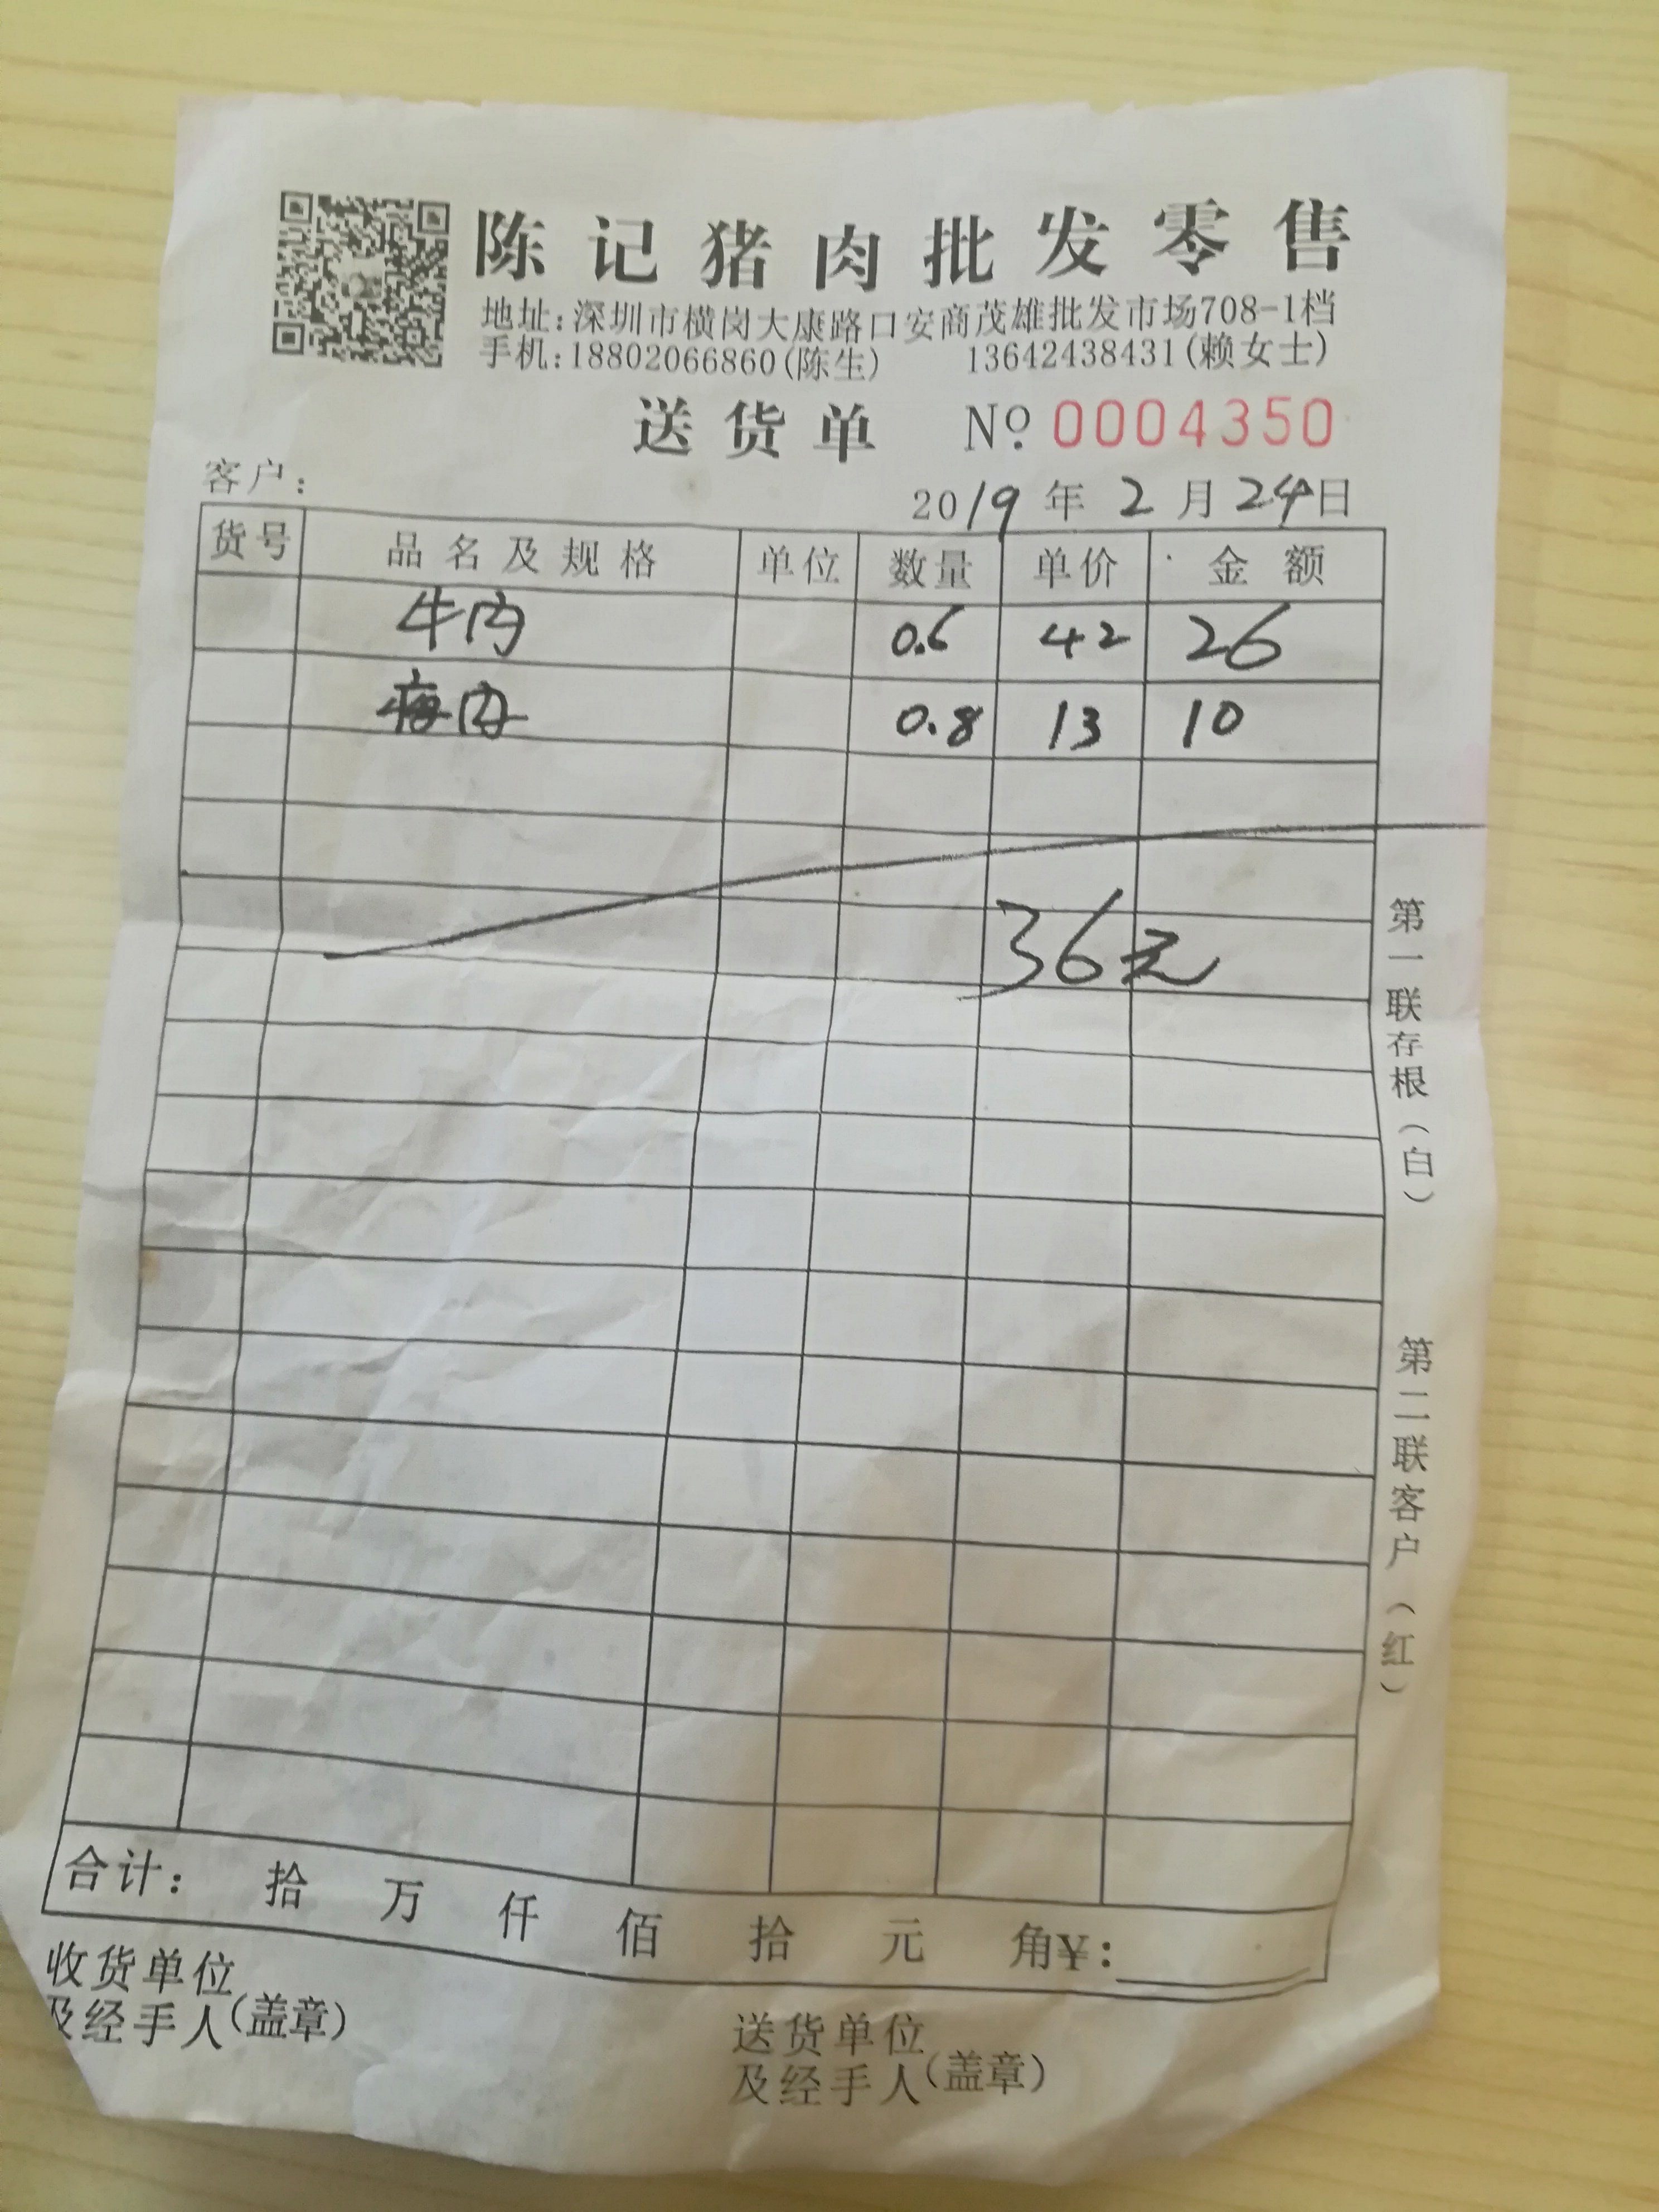 陈记猪肉批发零售
地址:深圳市横岗大康路口安商茂雄批发市场708-1档
手机:18802066860(陈生) 13642438431(赖女士)
送货单 Nº 0004350
客户:
2019年2月24日
货号 品名及规格 单位 数量 单价 金额
牛肉 0.6 42 26
肉 0.8 13 10
36元
合计: 拾 万 仟 佰 拾 元 角¥:
收货单位
及经手人(盖章)
送货单位
及经手人(盖章)
第一联存根(白)
第二联客户(红)